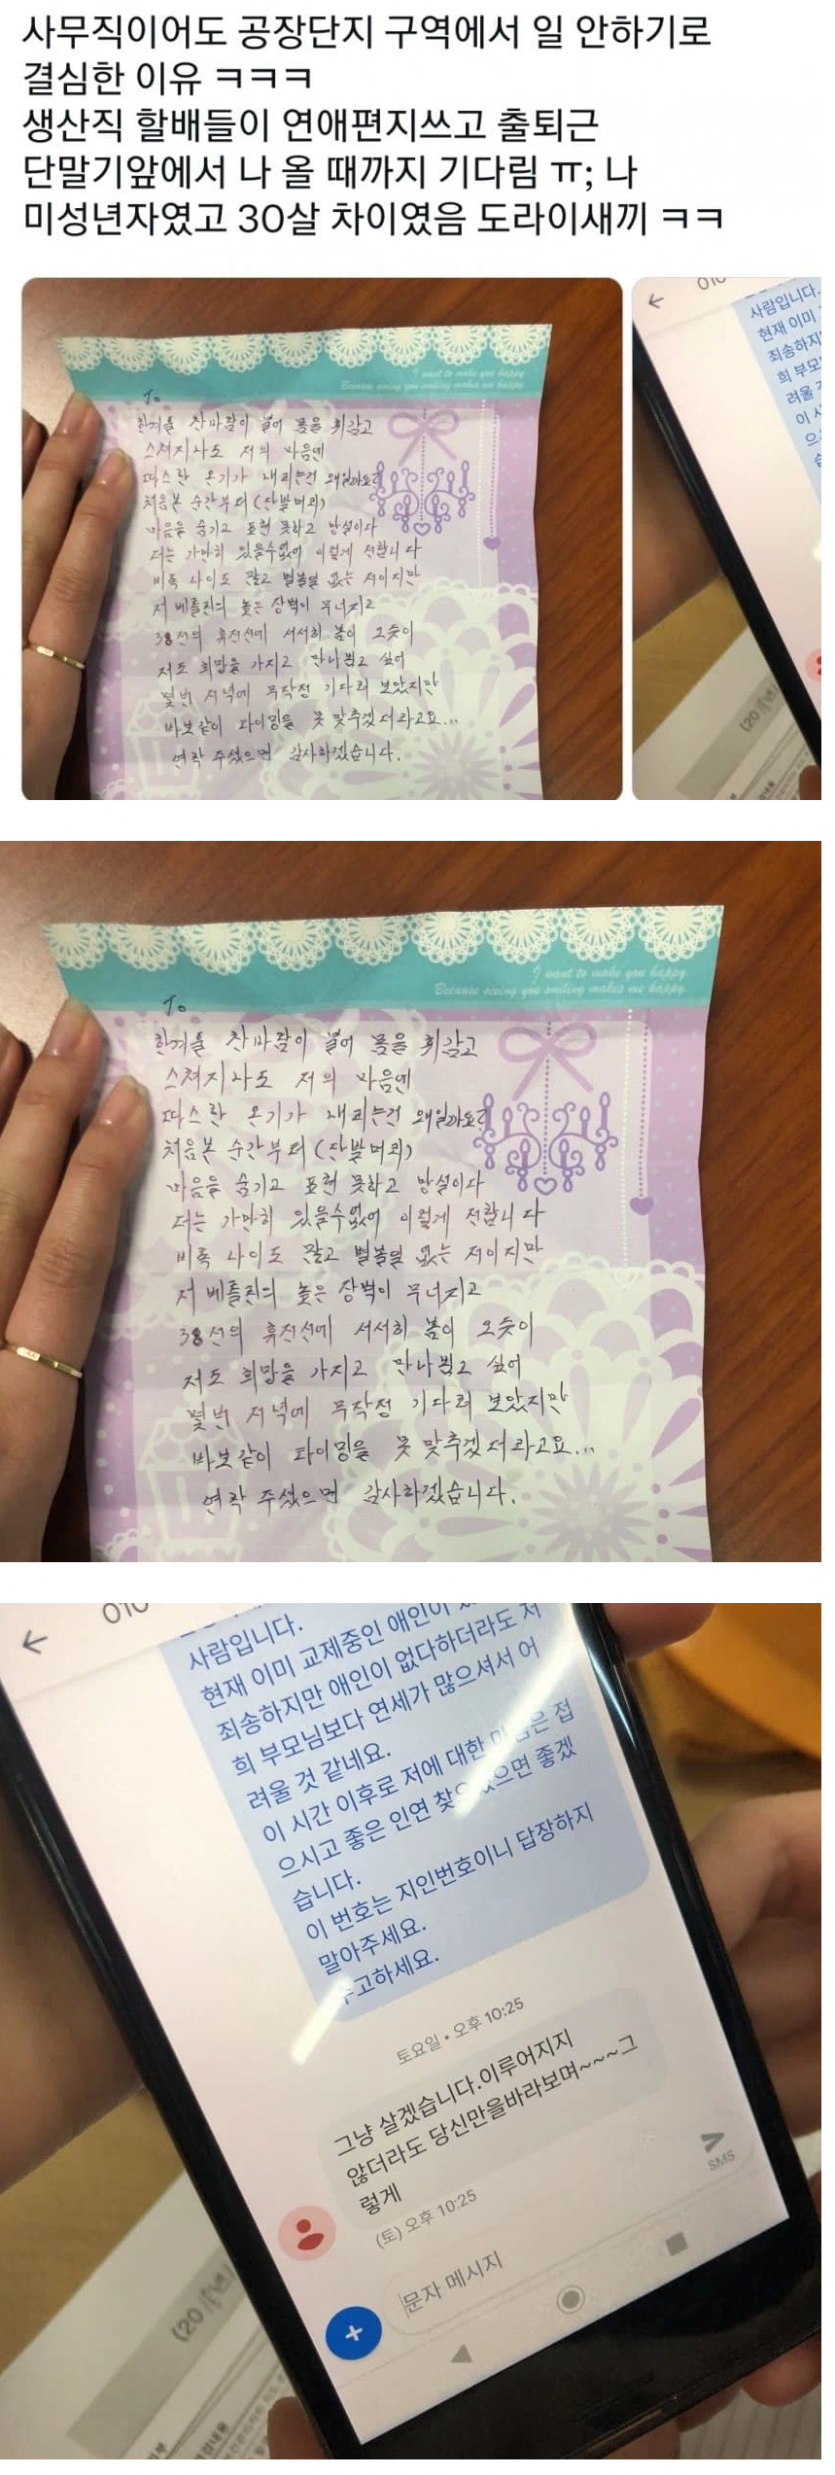 사무직이어도 공장단지 구역에서 일 안하기로
결심한 이유 ㅋㅋㅋ
생산직 할배들이 연애편지쓰고 출퇴근
단말기앞에서 나 올 때까지 기다림 ㅠ; 나
미성년자였고 30살 차이였음 도라이새끼 ㅋㅋ
I want to make you happy
Because seeing you smiling makes me happy
To
한겨울 찬바람이 불어 몸을 휘감고
스쳐지나도 저의 마음엔
따스한 온기가 내리는건 왜일까요?
처음본 순간부터 (단발머리)
마음을 숨기고 표현 못하고 망설이다
더는 가만히 있을수없어 이렇게 전합니다
비록 나이도 많고 별볼일 없는 저이지만
저 베를린의 높은 장벽이 무너지고
38선의 휴전선에 서서히 봄이 오슷이
저도 희망을 가지고 만나뵙고 싶어
몇번 저녁에 무작정 기다려 보았지만
바보같이 타이밍을 못 맞추겠더라고요...
연락 주셨으면 감사하겠습니다.
010
사람입니다.
현재 이미
죄송하지
희 부모
려울
이 시
으
습
I want to make you happy
Because seeing you smiling makes me happy
To
한겨울 찬바람이 불어 몸을 휘감고
스쳐지나도 저의 마음엔
따스한 온기가 내리는건 왜일까요?
처음본 순간부터 (단발머리)
마음을 숨기고 표현 못하고 망설이다
더는 가만히 있을수없어 이렇게 전합니다
비록 나이도 많고 별볼일 없는 저이지만
저 베를린의 높은 장벽이 무너지고
38선의 휴전선에 서서히 봄이 오슷이
저도 희망을 가지고 만나뵙고 싶어
몇번 저녁에 무작정 기다려 보았지만
바보같이 타이밍을 못 맞추겠더라고요...
연락 주셨으면 감사하겠습니다.
010
사람입니다.
현재 이미 교제중인 애인이
죄송하지만 애인이 없다하더라도 저
희 부모님보다 연세가 많으셔서 어
려울 것 같네요.
이 시간 이후로 저에 대한 은 접
으시고 좋은 인연 으면 좋겠
습니다.
이 번호는 지인번호이니 답장하지
말아주세요.
수고하세요.
토요일 • 오후 10:25
그냥 살겠습니다.이루어지지
않더라도 당신만을바라보며~~~그
렇게
(토) 오후 10:25
SMS
문자 메시지